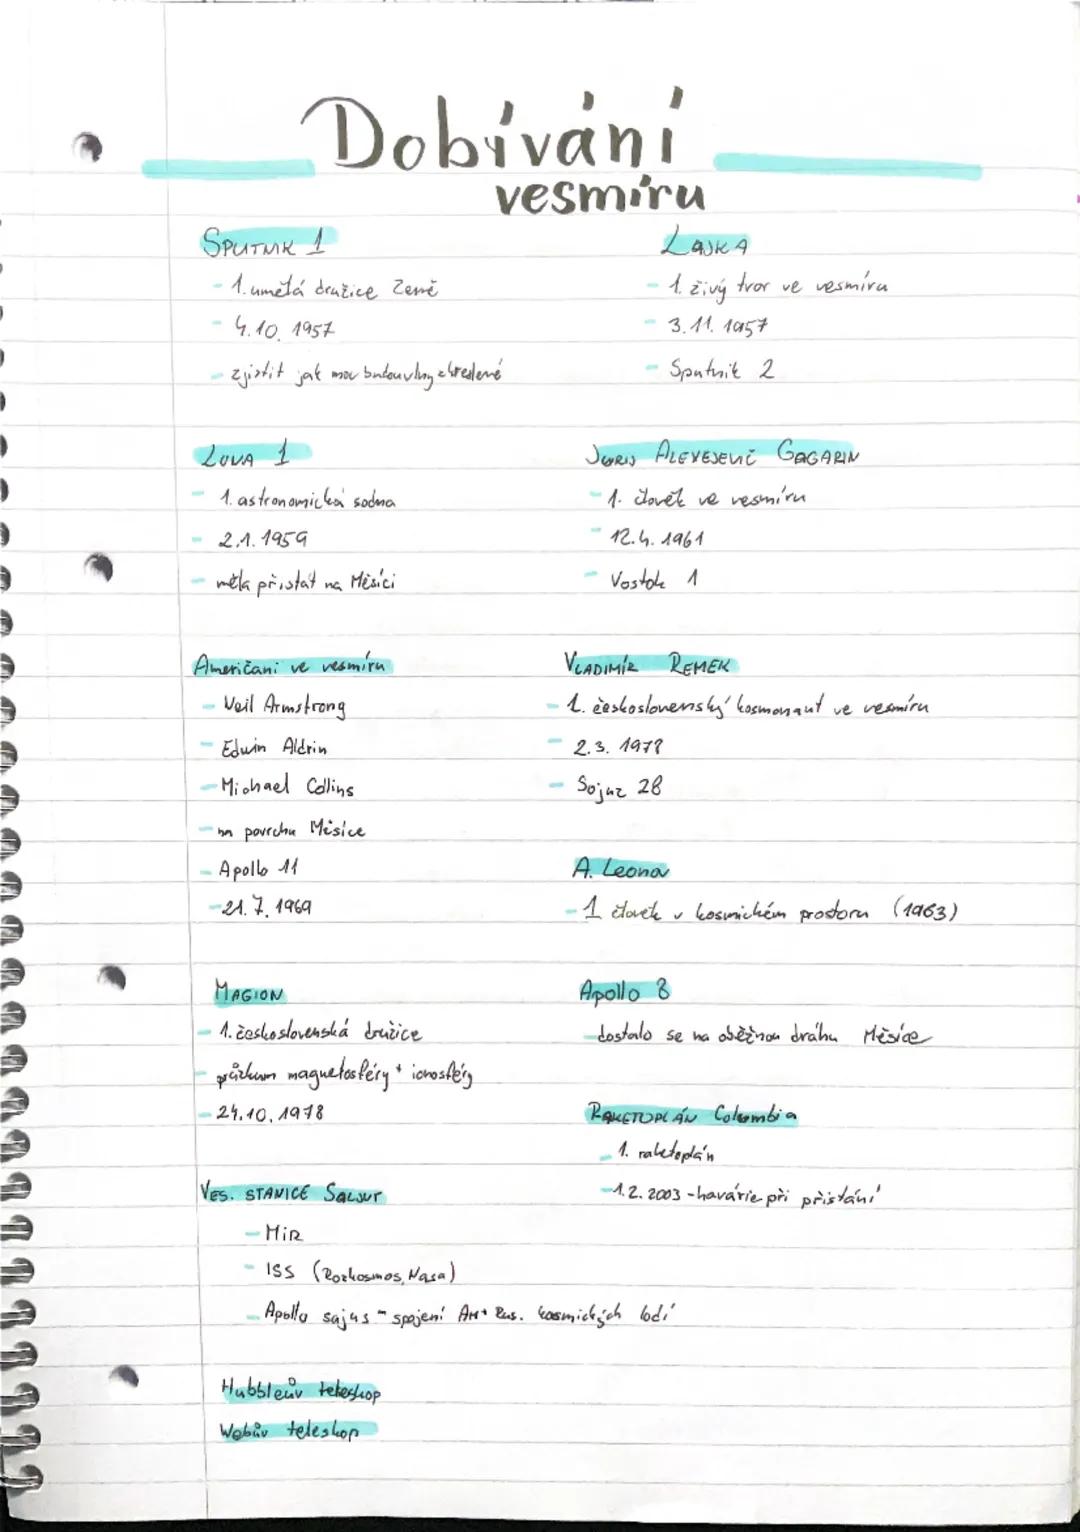 Dobívání
vesmíru
SPUTNIK 1
- 1. umělá družice Země
- 4.10. 1957
- zjistit jak mou budou vlny
LAJKA
- 1. živý tvor ve vesmíru
- 3.11. 1957
- Sputnik 2
LUNA 1
- 1. astronomická sodna
- 2.1. 1959
- měla přistát na Měsíci
JURIJ ALEXEJEVIČ GAGARIN
- 1. člověk ve vesmíru
- 12.4. 1961
- Vostok 1
Američani ve vesmíru
- Neil Armstrong
- Edwin Aldrin
- Michael Collins
- na povrchu Měsíce
- Apollo 11
- 21.7. 1969
VLADIMÍR REMEK
- 1. československý kosmonaut ve vesmíru
- 2.3. 1978
- Sojuz 28
A. Leonov
- 1 člověk v kosmickém prostoru (1963)
MAGION
- 1. československá družice
- průzkum magnetosféry + ionosféry
- 24.10. 1978
Apollo 8
- dostalo se na oběžnou dráhu Měsíce
RAKETOPLÁN Columbia
- 1. raketoplán
- 1.2. 2003 - havárie při přistání
VES. STANICE SALJUT
- MIR
- ISS (Rozkosmos, Nasa)
- Apollo sajus - spojení Am + Rus. kosmických lodí
Hubbleův teleskop
Webův teleskop